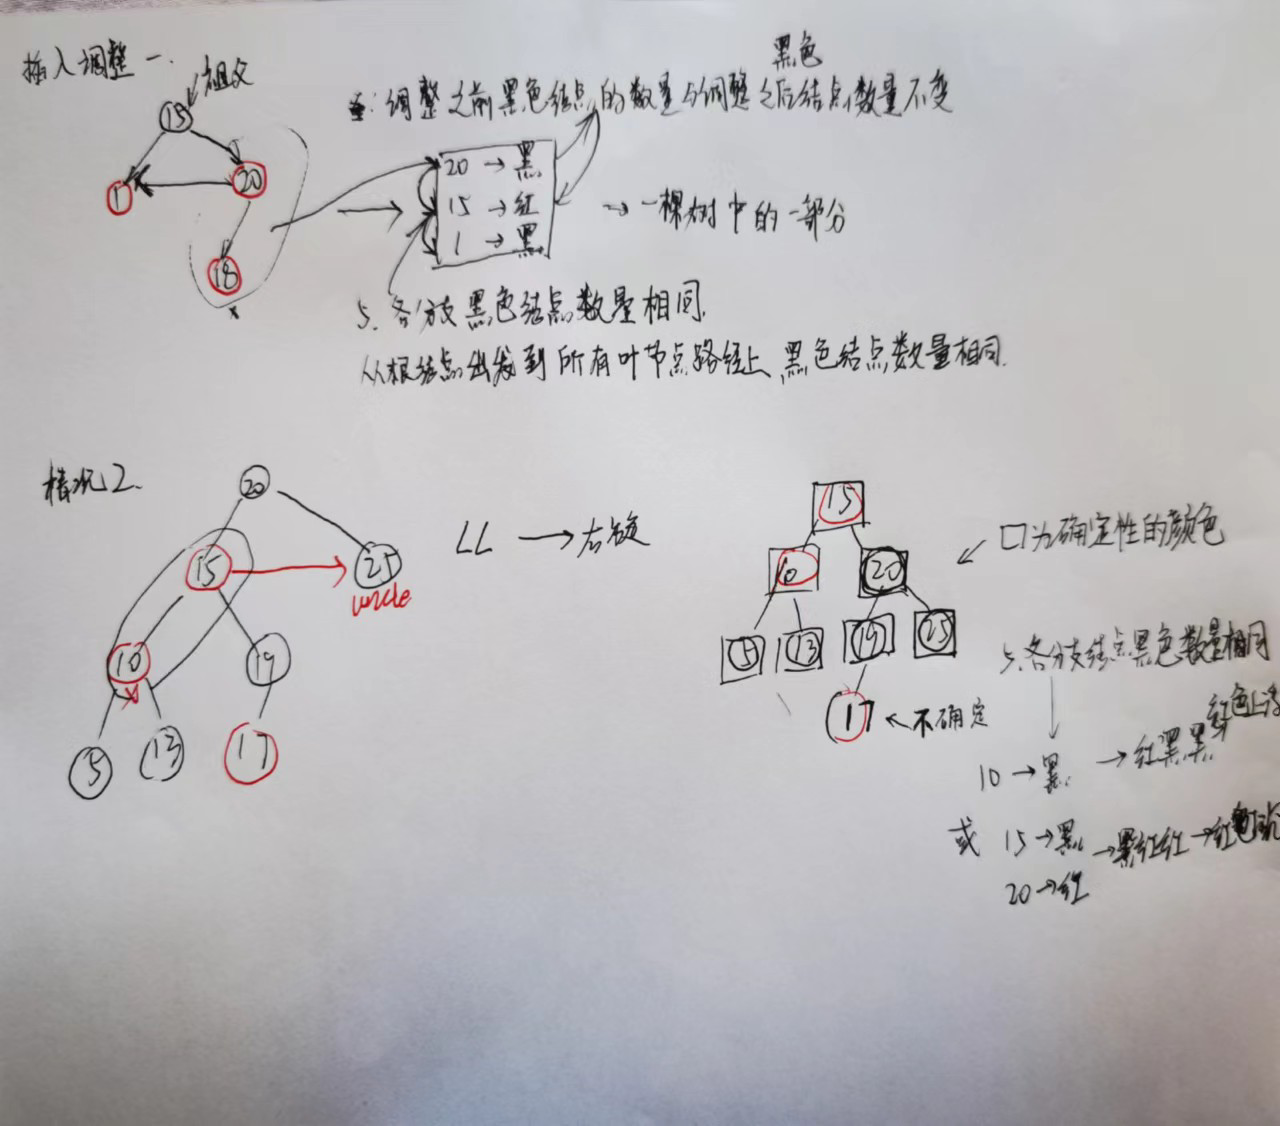 插入调整一.
祖父
15
1
20
18
黑色
调整之前黑色结点的数量与调整之后结点数量不变
20 → 黑
15 → 红
1 → 黑
→ 一棵树中的一部分
5. 各分支黑色结点数量相同.
从根结点出发到所有叶节点路径上黑色结点数量相同.
情况2.
20
15
25
uncle
10
19
5
13
17
LL → 右旋
15
10
20
5
13
19
25
17 ← 不确定
口为确定性的颜色
5. 各分支结点黑色数量相同
10 → 黑 → 红黑黑 红色上浮
或 15 → 黑 → 黑红红 → 红色下沉
20 → 红